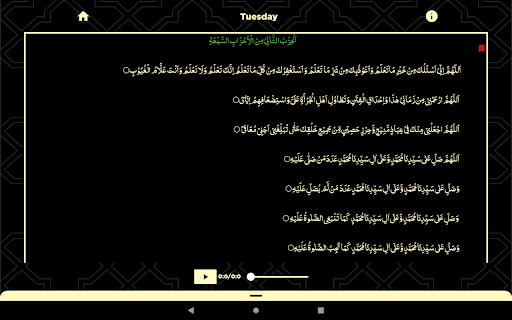 Tuesday
اَلْحِزْبُ الثَّانِيْ مِنَ الْاَحْزَابِ السَّبْعَةِ
اَللّٰهُمَّ اِنِّيْ اَسْئَلُكَ مِنْ خَيْرِ مَا تَعْلَمُ وَاَعُوْذُ بِكَ مِنْ شَرِّ مَا تَعْلَمُ وَاَسْتَغْفِرُكَ مِنْ كُلِّ مَا تَعْلَمُ اِنَّكَ تَعْلَمُ وَلَا نَعْلَمُ وَاَنْتَ عَلَّامُ الْغُيُوْبِ○
اَللّٰهُمَّ ارْحَمْنِيْ مِنْ زَمَانِيْ هٰذَا وَاِحْدَاقِ الْفِتَنِ وَتَطَاوُلِ اَهْلِ الْجُرْأَةِ عَلَيَّ وَاسْتِضْعَافِهِمْ اِيَّايَ○
اَللّٰهُمَّ اجْعَلْنِيْ مِنْكَ فِيْ عِيَاذٍ مَّنِيْعٍ وَّحِرْزٍ حَصِيْنٍ مِّنْ جَمِيْعِ خَلْقِكَ حَتّٰى تُبَلِّغَنِيْ اَجَلِيْ مُعَافًى○
اَللّٰهُمَّ صَلِّ عَلٰى سَيِّدِنَا مُحَمَّدٍ وَّعَلٰى اٰلِ سَيِّدِنَا مُحَمَّدٍ عَدَدَ مَنْ صَلّٰى عَلَيْهِ○
وَصَلِّ عَلٰى سَيِّدِنَا مُحَمَّدٍ وَّعَلٰى اٰلِ سَيِّدِنَا مُحَمَّدٍ عَدَدَ مَنْ لَّمْ يُصَلِّ عَلَيْهِ○
وَصَلِّ عَلٰى سَيِّدِنَا مُحَمَّدٍ وَّعَلٰى اٰلِ سَيِّدِنَا مُحَمَّدٍ كَمَا تَنْبَغِي الصَّلٰوةُ عَلَيْهِ○
وَصَلِّ عَلٰى سَيِّدِنَا مُحَمَّدٍ وَّعَلٰى اٰلِ سَيِّدِنَا مُحَمَّدٍ كَمَا تَجِبُ الصَّلٰوةُ عَلَيْهِ○
0:0/0:0